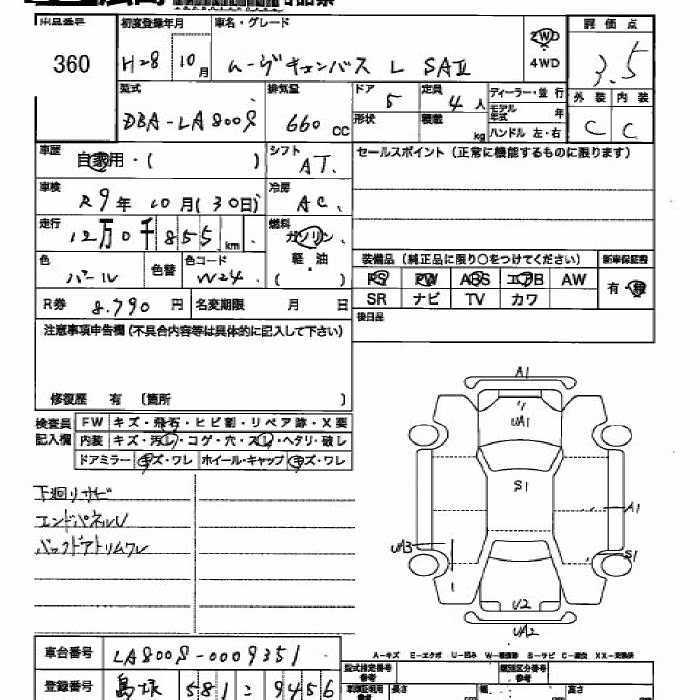 初度登録年月 車名・グレード 2WD 4WD 評価点
360 H28 10月 ムーヴキャンバス L SAⅡ 3.5
型式 排気量 ドア 定員 ディーラー・並行 外装 内装
DBA-LA800S 660cc 5 4人 モデル年式 年 C C
形状 積載 kg ハンドル 左・右
車歴 自家用・( ) シフト AT セールスポイント(正常に機能するものに限ります)
車検 R9年 10月(30日) 冷房 AC
走行 12万0千855km 燃料 ガソリン・軽油・( )
色 パール 色替 色コード W24 装備品(純正品に限り○をつけてください) 新車保証書
PS PW ABS エアB AW 有・無
SR ナビ TV カワ
R券 8,790円 名変期限 月 日
後日品
注意事項申告欄(不具合内容等は具体的に記入して下さい)
修復歴 有 〔箇所 〕
検査員記入欄 FW キズ・飛石・ヒビ割・リペア跡・X要
内装 キズ・汚レ・コゲ・穴・スレ・ヘタリ・破レ
ドアミラー キズ・ワレ ホイール・キャップ キズ・ワレ
下廻リサビ
エンドパネルU
バックドアトリムワレ
A1
UA1
S1
A1
UA3
S1
U2
UA2
A-キズ E-エクボ U-凹ミ W-補修跡 S-サビ C-腐食 XX-交換済
車台番号 LA800S-0009351
型式指定番号 参考 類別区分番号 参考
登録番号 島根 581 こ 9456
長さ 幅 高さ